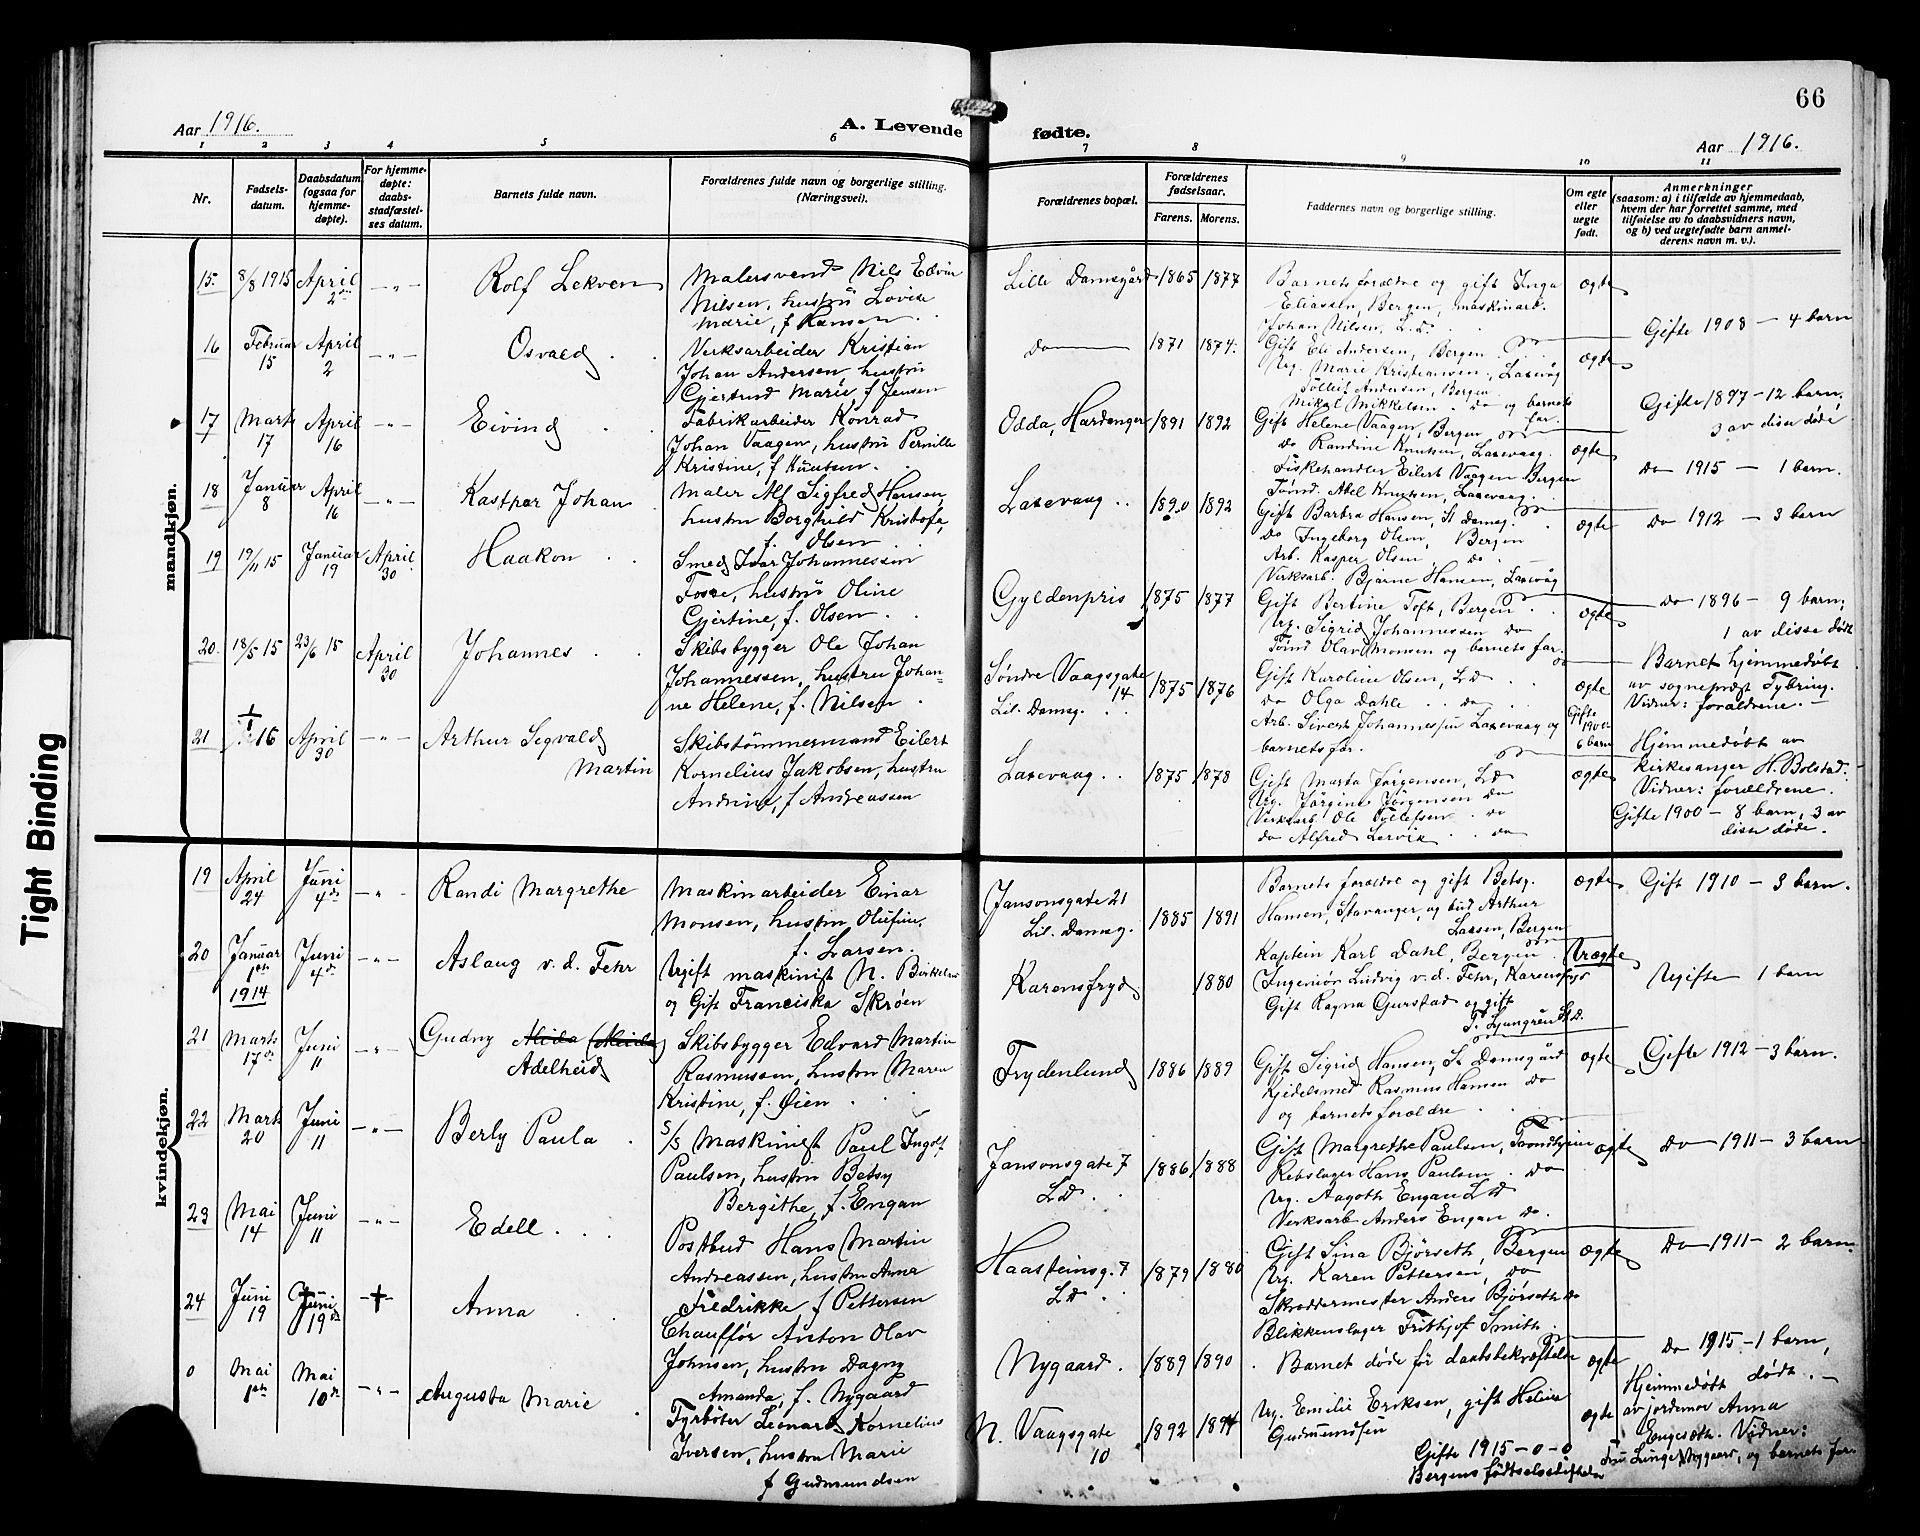 66
Aar 1916.
A. Levende fødte.
Aar 1916.
1 2 3 4 5 6 7 8 9 10 11
Nr.
Fødsels-
datum.
Daabsdatum
(ogsaa for
hjemme-
døpte).
For hjemme-
døpte:
daabs-
stadfæstel-
ses datum.
Barnets fulde navn.
Forældrenes fulde navn og borgerlige stilling.
(Næringsvei).
Forældrenes bopæl.
Forældrenes
fødselsaar.
Farens. Morens.
Faddernes navn og borgerlige stilling.
Om egte
eller
uegte
født.
Anmerkninger
(saasom: a) i tilfælde av hjemmedaab,
hvem der har forrettet samme, med
tilføielse av to daabsvidners navn,
og b) ved uegtefødte barn anmel-
derens navn m. v.).
mandkjøn.
15. 8/8 1915 April 2den - „ - Rolf Lekven
Malersvend Nils Edvin
Nilsen, hustru Lovise
Marie, f Hansen
Lille Damsgård 1865 1877
Barnets forældre og gift Inga
Eliassen, Bergen, maskinarb.
Johan Nilsen, L. do
ægte
Gifte 1908 - 4 barn
16 Februar 15 April 2 - „ - Osvald
Verksarbeider Kristian
Johan Andersen hustru
Gjertrud Marie, f Jensen
do 1871 1874.
Gift Eli Andersen, Bergen
Ug. Marie Kristiansen, Laxevåg
Tollef Andersen, Bergen
Mikal Mikkelsen do og barnets
far.
ægte
Gifte 1897 - 12 barn.
3 av disse døde
17 Marts 17 April 16 - „ - Eivind
Fabrikarbeider Konrad
Johan Vaagen, hustru Pernille
Kristine, f Knutsen.
Odda, Hardanger 1891 1892
Gift Helene Vaagen, Bergen
do Randine Knutsen, Laxevaag.
Fiskehandler Eilert Vaagen Bergen
Tømd. Abel Knutsen, Laxevaag.
ægte
Do 1915 - 1 barn.
18 Januar 8 April 16 - „ - Kaspar Johan
Maler Alf Sigfred Hansen,
hustru Borghild Kristofa,
f. Olsen
Laxevaag 1890 1892
Gift Barbra Hansen, St Damsg.
do Ingeborg Olsen, Bergen
Arb. Kasper Olsen do
Verksarb. Bjarne Hansen, Laxevåg
ægte
Do 1912 - 3 barn
19 19/11 15 Januar 19 April 30 Haakon
Smed Ivar Johannessen
Fosse, hustru Oline
Gjertine, f. Olsen
Gyldenpris 1875 1877
Gift Bertine Toft, Bergen
Ug. Sigrid Johannessen do
Tømd Olav Monsen og barnets far.
ægte
Do 1896 - 9 barn;
1 av disse døde
20. 18/5 15 23/6 15 April 30 Johannes
Skibsbygger Ole Johan
Johannessen, hustru Johan-
ne Helene, f. Nilsen
Søndre Vaagsgate 14
Lil. Damsg. 1875 1876
Gift Karoline Olsen, L D
do Olga Dahle do
Arb. Sivert Johannessen Laxevaag og
barnets far.
ægte
Gifte
1900
6 barn
Barnet hjemmedøbt
av sogneprest Tybring.
Vidner: forældrene.
21 16 April 30 - „ - Arthur Sigvald
Martin
Skibstømmermand Eilert
Kornelius Jakobsen, hustru
Andrine, f Andreassen
Laxevaag 1875 1878
Gift Marta Jørgensen, L D
Ug. Jørgine Jørgensen do
Verksarb Ole Tollefsen do
do Alfred Lervik do
ægte
Hjemmedøbt av
kirkesanger H. Bolstad.
Vidner: forældrene.
Gifte 1900 - 8 barn, 3 av
disse døde.
kvindekjøn.
19 April 24 Juni 4de - „ - Randi Margrethe
Maskinarbeider Einar
Monsen, hustru Olufine,
f. Larsen.
Jansonsgate 21
Lil. Damsg. 1885 1891
Barnets forældre og gift Betsy
Hansen, Stavanger, og bud Arthur
Larsen, Bergen
ægte
Gift 1910 - 3 barn.
20 Januar 1ste 1914 Juni 4de - „ - Aslaug v. d. Fehr
Ugift maskinist N. Birkeland
og Gift Franciska Skrøen
Karensfryd 1880
Kaptein Karl Dahl, Bergen
Ingeniør Ludvig v. d. Fehr, Karensfryd
Gift Ragna Gjerstad og gift
P. Ljungren L D.
Uægte
Ugifte - 1 barn
21 Marts 17de Juni 11 - „ - Gudny Adelheid
Skibsbygger Edvard Martin
Rasmussen, hustru Maren
Kristine, f. Øien
Frydenlund 1886 1889
Gift Sigrid Hansen, St Damsgård
Kjedelsmed Rasmus Hansen do
og barnets forældre
ægte
Gifte 1912 - 3 barn.
22 Marts 20 Juni 11 - „ - Berly Paula
S/S Maskinist Paul Ingolf
Paulsen, hustru Betsy
Bergithe, f. Engan
Jansonsgate 7
L D. 1886 1888
Gift Margrethe Paulsen, Trondhjem
Rebslager Hans Paulsen do
Ug. Aagoth Engan L D
Verksarb Anders Engan do.
ægte
Do 1911 - 3 barn
23 Mai 14 Juni 11 - „ - Edell
Postbud Hans Martin
Andreassen, hustru Anna
Fredrikke f Pettersen
Haasteinsg. 7
L D. 1879 1880
Gift Lina Bjørseth, Bergen
Ug. Karen Pettersen, do
Skræddermester Anders Bjørseth do
Blikkenslager Frithjof Smith.
ægte
Do 1911 - 2 barn
24 Juni 19 Juni 19de - † - Anna
Chauffør Anton Olav
Johnsen, hustru Dagny
Amanda, f. Nygaard
Nygaard. 1889 1890
Barnet døde før daabsbekræftelse
ægte
Do 1915 - 1 barn,
Hjemmedøbt dødt.
av jordemor Anna
Engesæth. Vidner:
Nygaard, og barnets far.
0 Mai 1ste Mai 10de - „ - Augusta Marie
Fyrbøter Leonard Kornelius
Iversen, hustru Marie
f Gudmundsen
N. Vaagsgate
10 1892 1894
Ug. Emilie Eriksen, gift Helene
Gudmundsen
ægte
Gifte 1915 - 0 - 0
Bergens fødselsstiftelse
Tight Binding